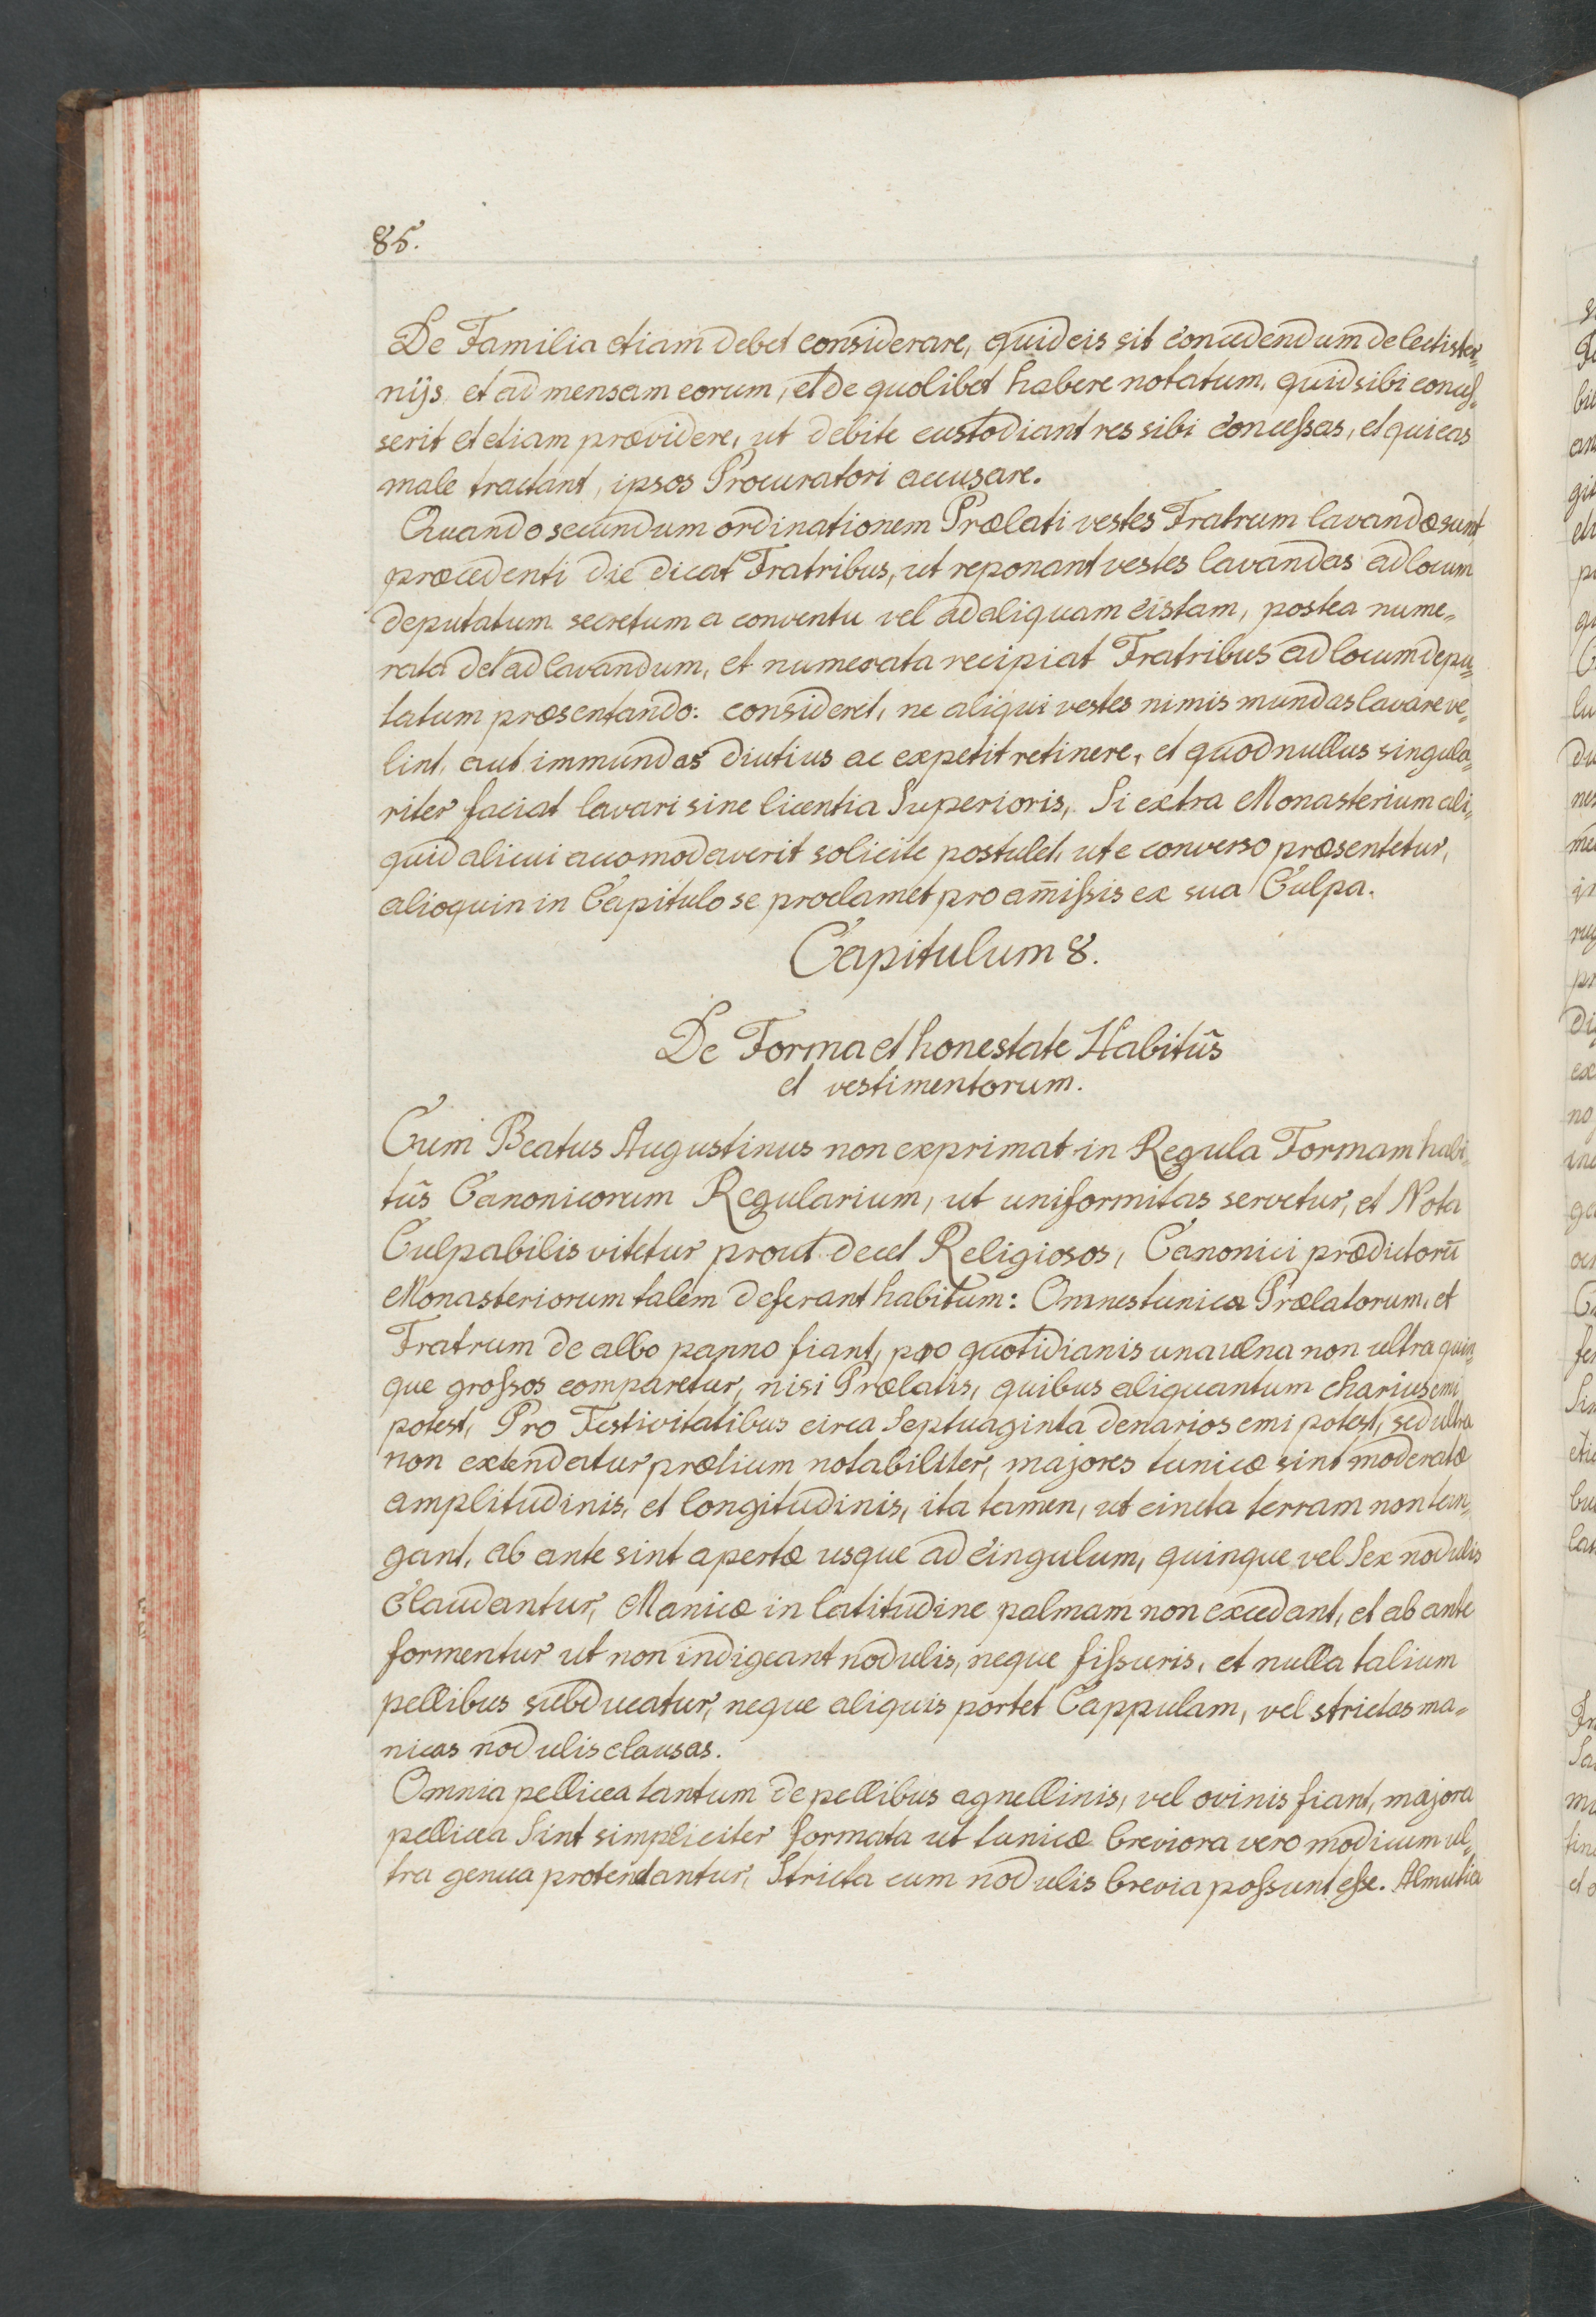 85.
De Familia etiam debet considerare, quid eis sit concedendum de lectister=
nijs, et ad mensam eorum, et de quolibet habere notatum, quid sibi conces=
serit et etiam prævidere, ut debite custodiant res sibi concessas, et qui eas
male tractant, ipsos Procuratori accusare.
Quando secundum ordinationem Prælati vestes Fratrum lavandæ sunt,
præcedenti die dicat Fratribus, ut reponant vestes lavandas ad locum
deputatum secretum a conventu vel ad aliquam cistam, postea nume=
rata det ad lavandum, et numerata recipiat Fratribus ad locum depu=
tatum præsentando: consideret, ne aliqui vestes nimis mundas lavare ve=
lint, aut immundas diutius ac expetit retinere, et quod nullus singula=
riter faciat lavari sine licentia Superioris, Si extra Monasterium ali=
quid alicui accomodaverit solicite postulet, ut e converso præsentetur,
alioquin in Capitulo se proclamet pro am̃issis ex sua Culpa.
Capitulum 8.
De Forma et honestate Habitũs
et vestimentorum.
Cum Beatus Augustinus non exprimat in Regula Formam habi=
tũs Canonicorum Regularium, ut uniformitas servetur, et Nota
Culpabilis vitetur prout decet Religiosos, Canonici prædictorũ
Monasteriorum talem deferant habitum: Omnes tunica Prælatorum, et
Fratrum de albo panno fiant, pro quotidianis una ulna non ultra quin=
que grossos comparetur, nisi Prælatis, quibus aliquantum charius emi
potest, Pro Festivitatibus circa Septuaginta denarios emi potest, sed ultra
non extendatur prætium notabiliter, majores tunicæ sint moderatæ
amplitudinis, et longitudinis, ita tamen, ut cincta terram non tan=
gant, ab ante sint apertæ usque ad cingulum, quinque vel Sex nodulis
claudantur, Manicæ in latitudine palmam non excedant, et ab ante
formentur ut non indigeant nodulis, neque fissuris, et nulla talium
pellibus subducatur, neque aliquis portet Cappulam, vel strictas ma=
nicas nodulis clausas.
Omnia pellicea tantum de pellibus agnellinis, vel ovinis fiant, majora
pellicea Sint simpliciter formata ut tunicæ breviora vero modicum ul=
tra genua protendantur, Stricta cum nodulis brevia possunt esse. Almutia